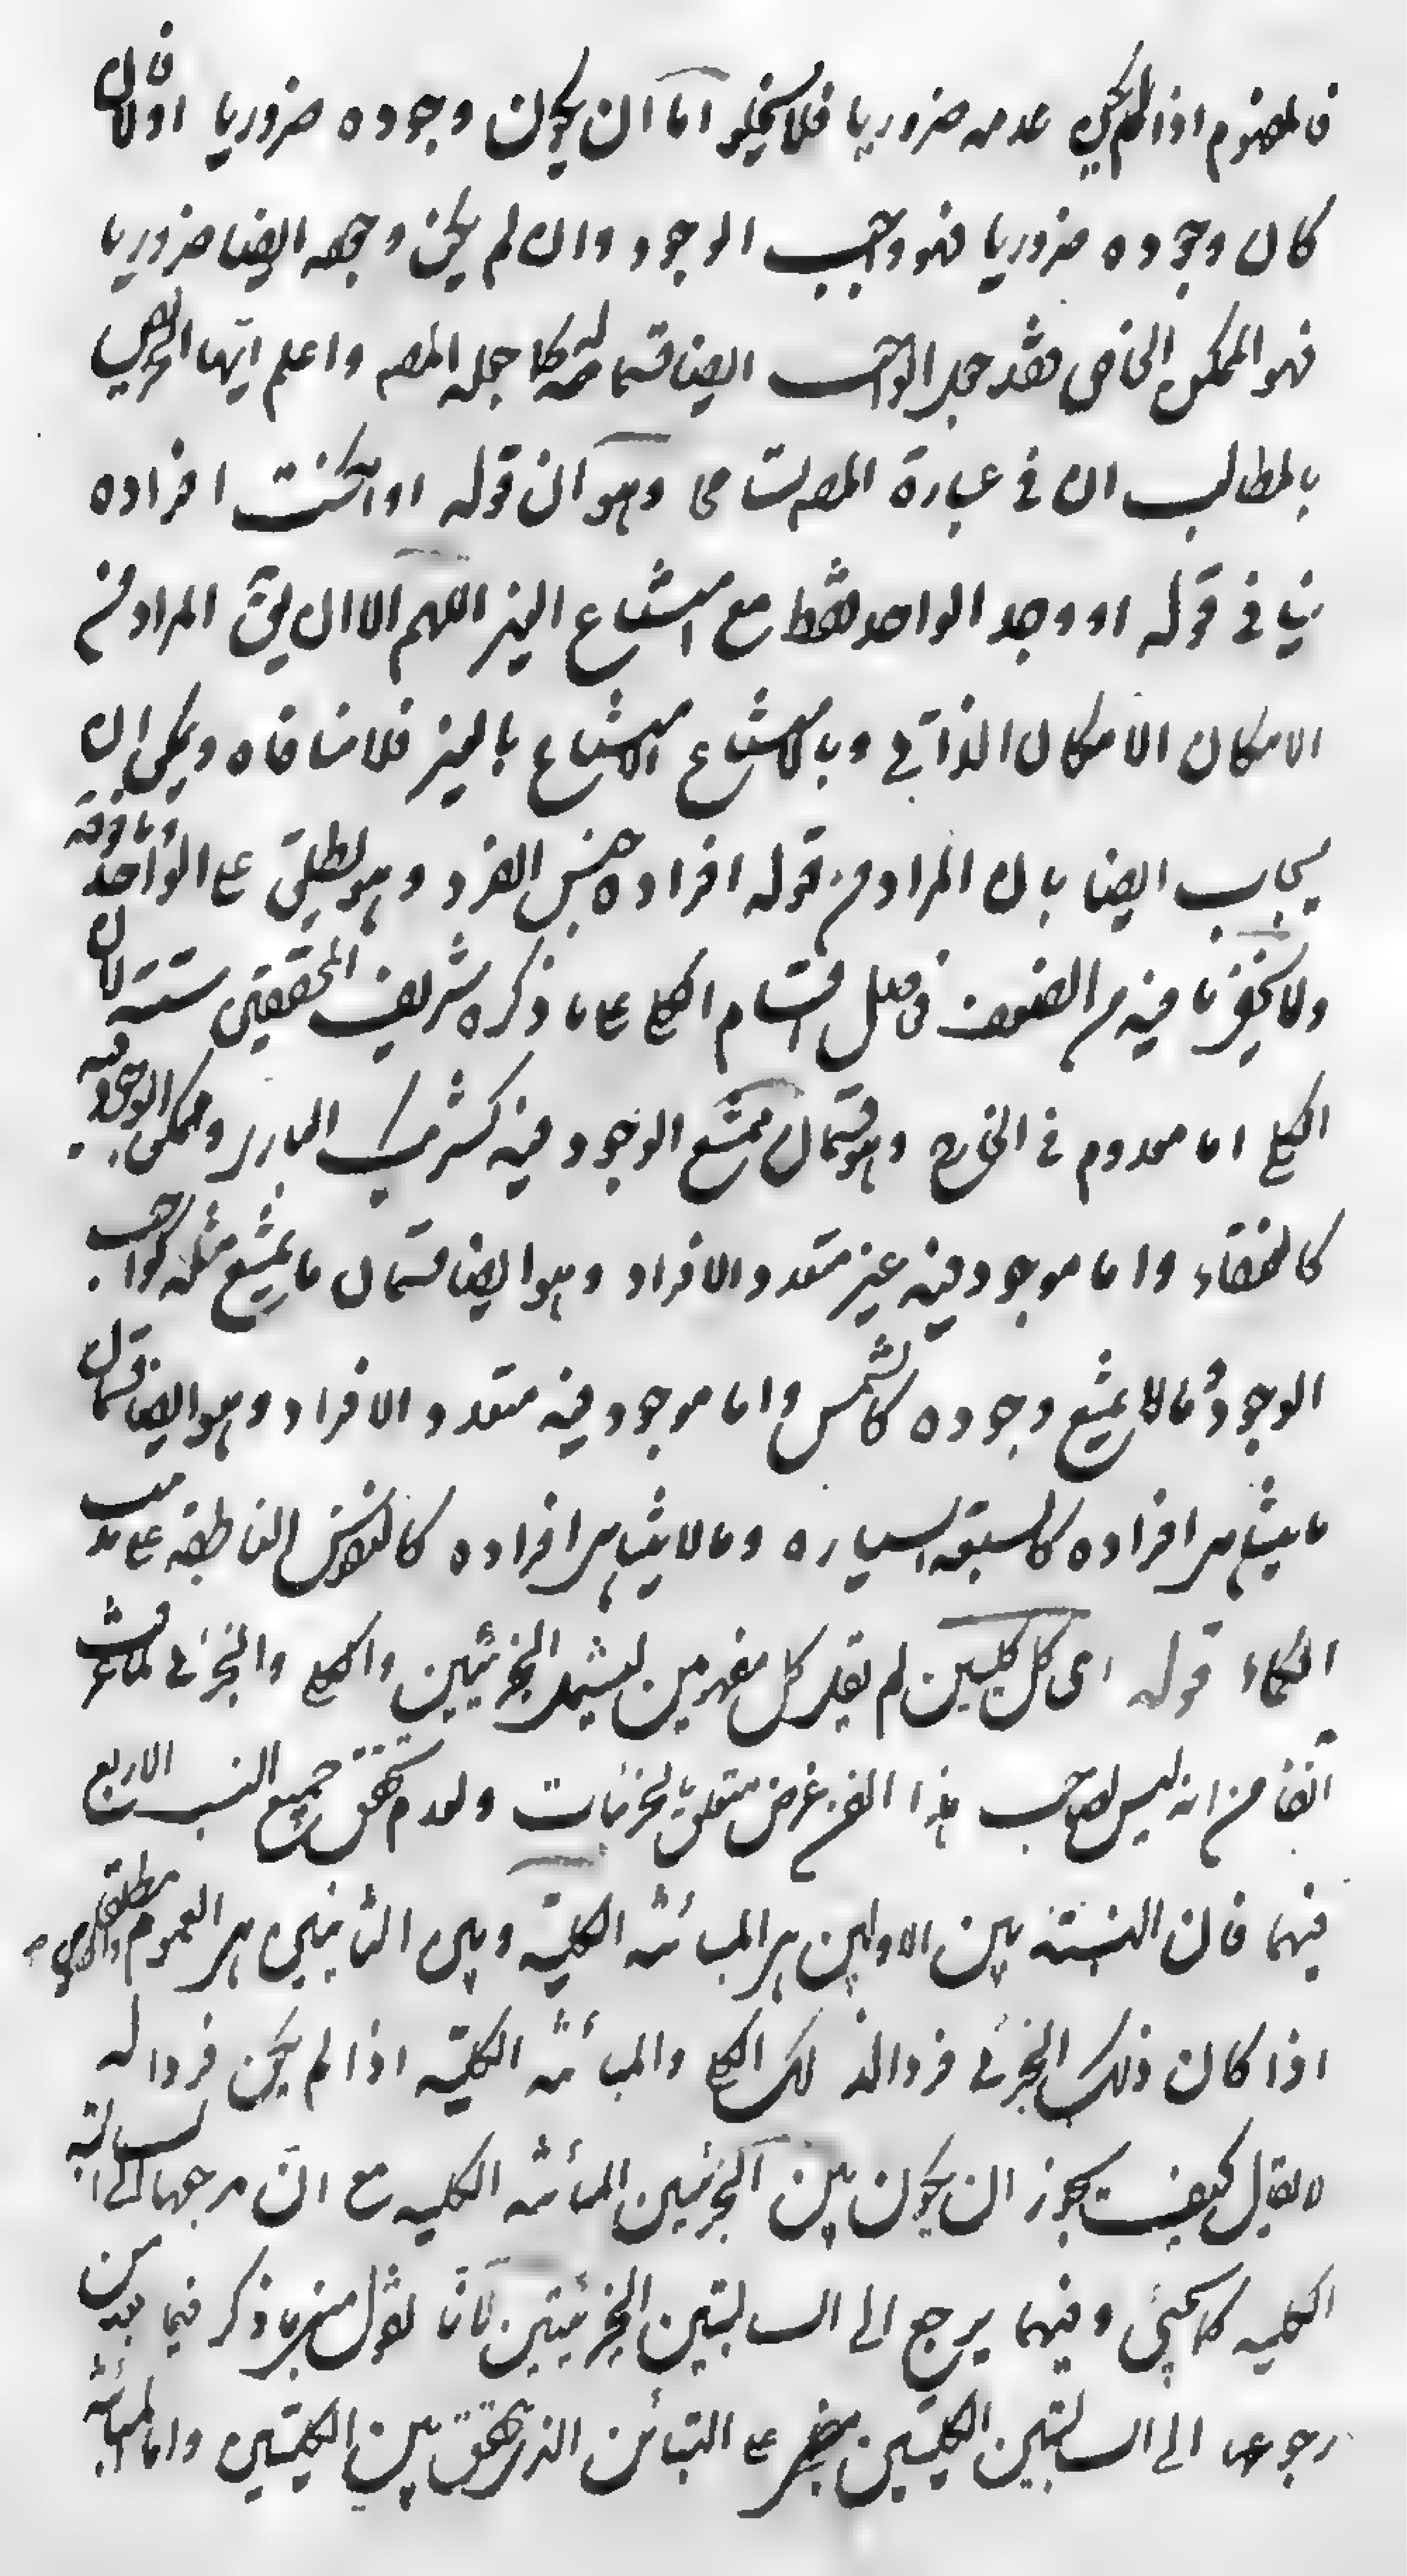 فالمفهوم اذا لم يكن عدمه ضروريا فلا يخلو اما ان يكون وجوده ضروريا اولا فان
كان وجوده ضروريا فهو واجب الوجود وان لم يكن وجوده ايضا ضروريا
فهو الممكن الخاص فقد جعل الواجب ايضا قسما منه كما جعله المصه واعلم ايها الحريص
بالمطالب ان فى عبارة المصه تسامحا وهو ان قوله او امكنت افراده
ينافى قوله او وجد الواحد فقط مع امتناع الغير اللهم الا ان يق المراد من
الامكان الامكان الذاتى وبالامتناع الامتناع بالغير فلا منافاه ويمكن ان
يجاب ايضا بان المراد من قوله افراده جنس الفرد وهو يطلق ع الواحد وما فوقه
ولا يخفى ما فيه من الضعف فاصل اقسام الكلى ع ما ذكره شريف المحققين ستته لان
الكلى اما معدوم فى الخارج وهو قسمان ممتنع الوجود فيه كشريك البارى وممكن الوجود فيه
كالعنقاء واما موجود فيه غير متعدد الافراد وهو ايضا قسمان ما يمتنع مثله كواجب
الوجود وما لا يمتنع وجوده كالشمس واما موجود فيه متعدد الافراد وهو ايضا قسمان
ما يتناهى افراده كالسبعة السياره وما لا يتناهى افراده كالنفوس الناطقه ع مذهب
الحكماء قوله اى كل كليين لم يقل كل مفهومين ليشمل الجزئيين والكلى والجزئى لما عرفت
آنفا من انه ليس لصاحب هذا الفن غرض متعلق بالجزئيات ولعدم تحقق جميع النسب الاربع
فيهما فان النسبته بين الاولين هى المبائنه الكليّه وبين الثانيين هى العموم مطلقا
اذا كان ذلك الجزئى فردا لذلك الكلى والمبائنه الكليّه اذا لم يكن فردا له
لا يقال كيف يجوز ان يكون بين الجزئيين المبائنه الكليه مع انّ مرجعها الى السالبه
الكليه كما سيجئ وفيهما يرجع الى السالبتين الجزئيتين لانّا نقول منه ما ذكر فيما بعد من
رجوعها الى السالبتين الكليتين ع التبائن الذى يتحقق بين الكليتين واما المبائنه